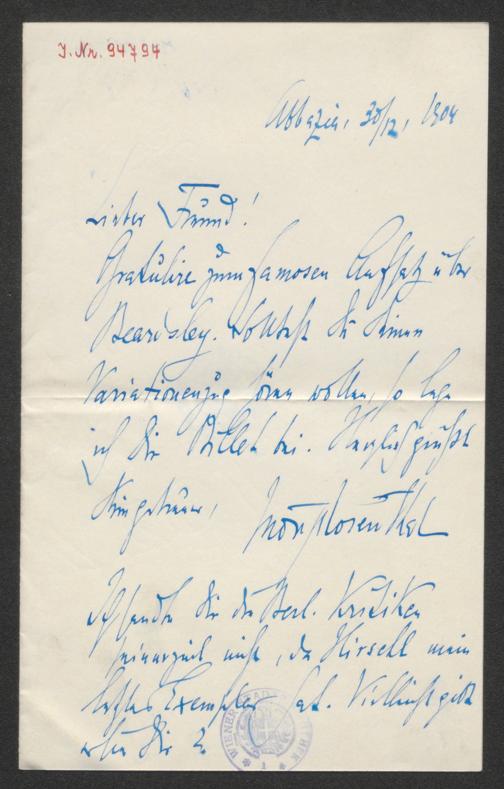 J. Nr. 94794
Abbazia, 30/12, 1904
Lieber Freund!
Gratulire zum famosen Aufsatz über
Beardsley. Solltest Du Deinen
hören wollen, so lege
ich Dir Billet bei. Herzlichst grüßt
Dein getreuer,
Moriz Rosenthal
Ich sandte Dir die Berl. Kritiken
seinerzeit nicht, da Hirsch mein
letztes Exemplar hat. Vielleicht gibt
er sie Dir?
WIENER STADT